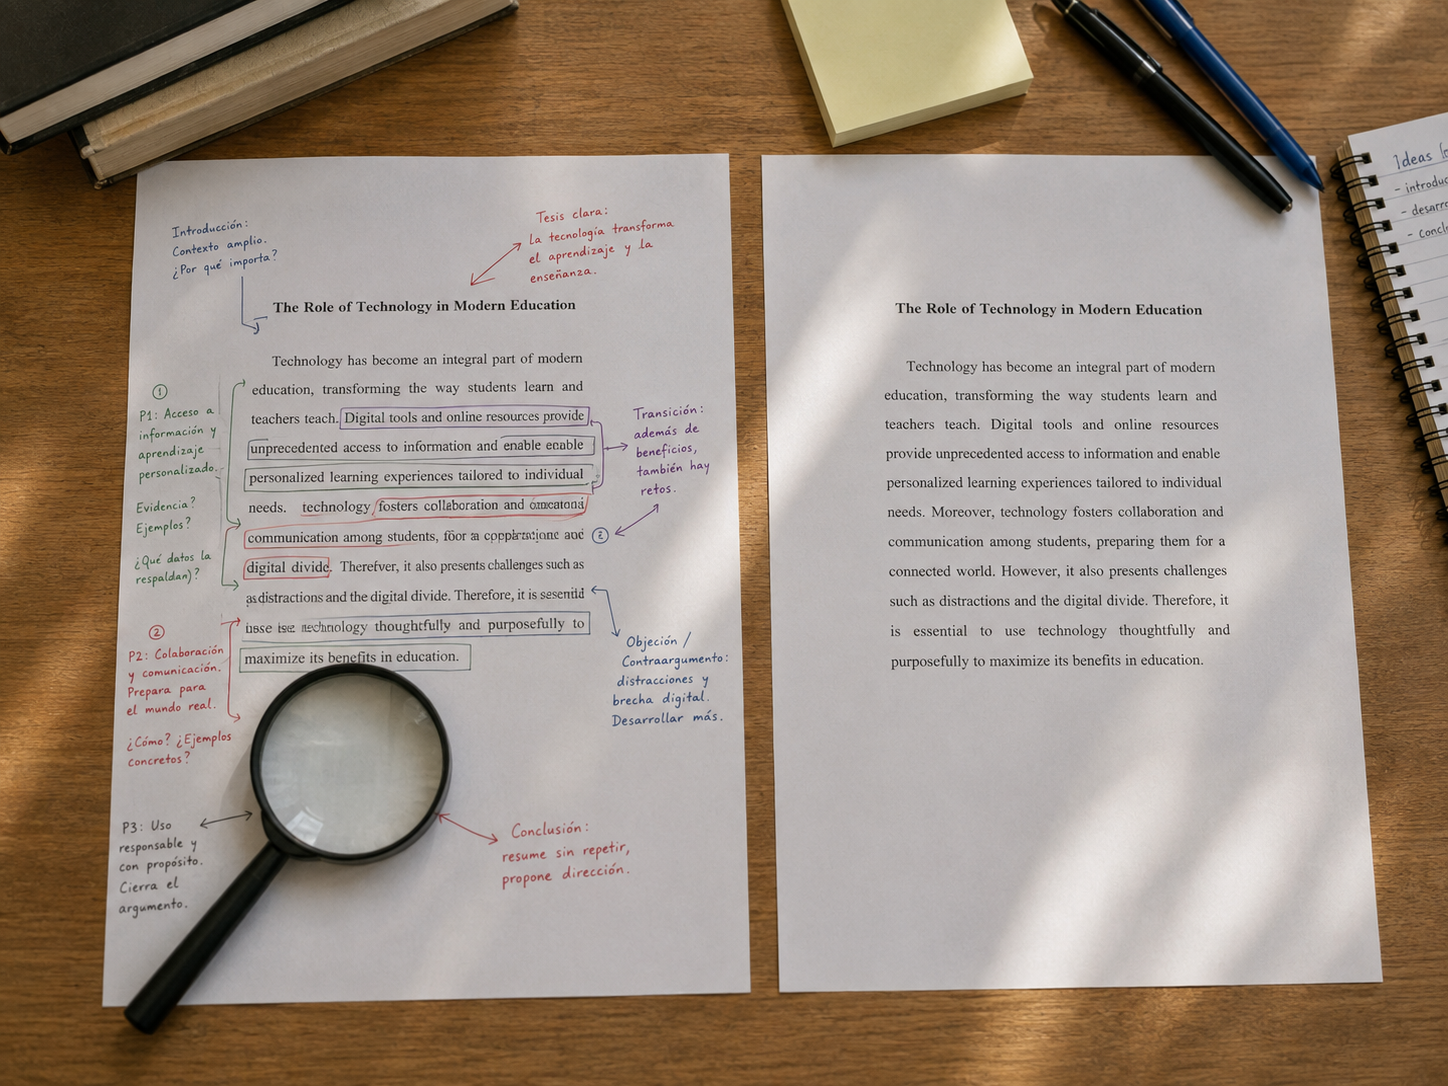 Introducción:
Contexto amplio.
¿Por qué importa?
Tesis clara:
La tecnología transforma
el aprendizaje y la
enseñanza.
The Role of Technology in Modern Education
Technology has become an integral part of modern
education, transforming the way students learn and
teachers teach. Digital tools and online resources provide
unprecedented access to information and enable enable
personalized learning experiences tailored to individual
needs. technology fosters collaboration and
communication among students, for a
digital divide. it also presents challenges such as
as distractions and the digital divide. Therefore, it is
technology thoughtfully and purposefully to
maximize its benefits in education.
1
P1: Acceso a
información y
aprendizaje
personalizado.
Evidencia?
Ejemplos?
¿Qué datos la
respaldan)?
2
P2: Colaboración
y comunicación.
Prepara para
el mundo real.
¿Cómo? ¿Ejemplos
concretos?
P3: Uso
responsable y
con propósito.
Cierra el
argumento.
Transición:
además de
beneficios,
también hay
retos.
2
Objeción /
Contraargumento:
distracciones y
brecha digital.
Desarrollar más.
Conclusión:
resume sin repetir,
propone dirección.
The Role of Technology in Modern Education
Technology has become an integral part of modern
education, transforming the way students learn and
teachers teach. Digital tools and online resources
provide unprecedented access to information and enable
personalized learning experiences tailored to individual
needs. Moreover, technology fosters collaboration and
communication among students, preparing them for a
connected world. However, it also presents challenges
such as distractions and the digital divide. Therefore, it
is essential to use technology thoughtfully and
purposefully to maximize its benefits in education.
Ideas
- introduc
- desarro
- conclu